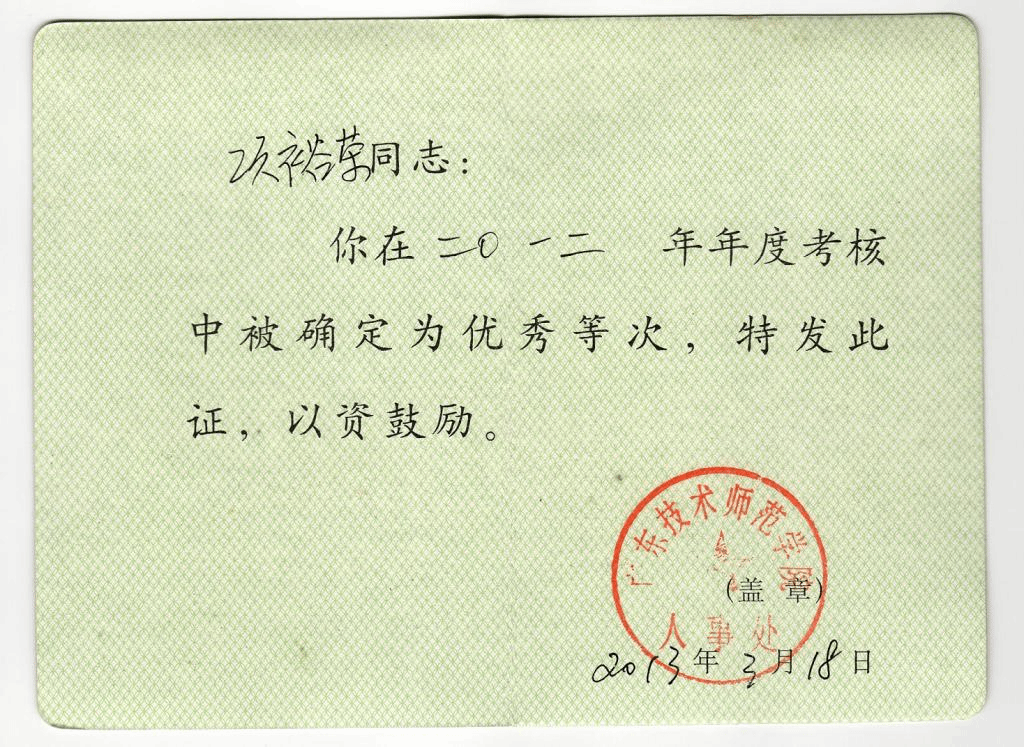 项裕荣同志：
你在二〇一二 年年度考核
中被确定为优秀等次，特发此
证，以资鼓励。
广东技术师范学院
（盖 章）
人事处
2013年3月18日